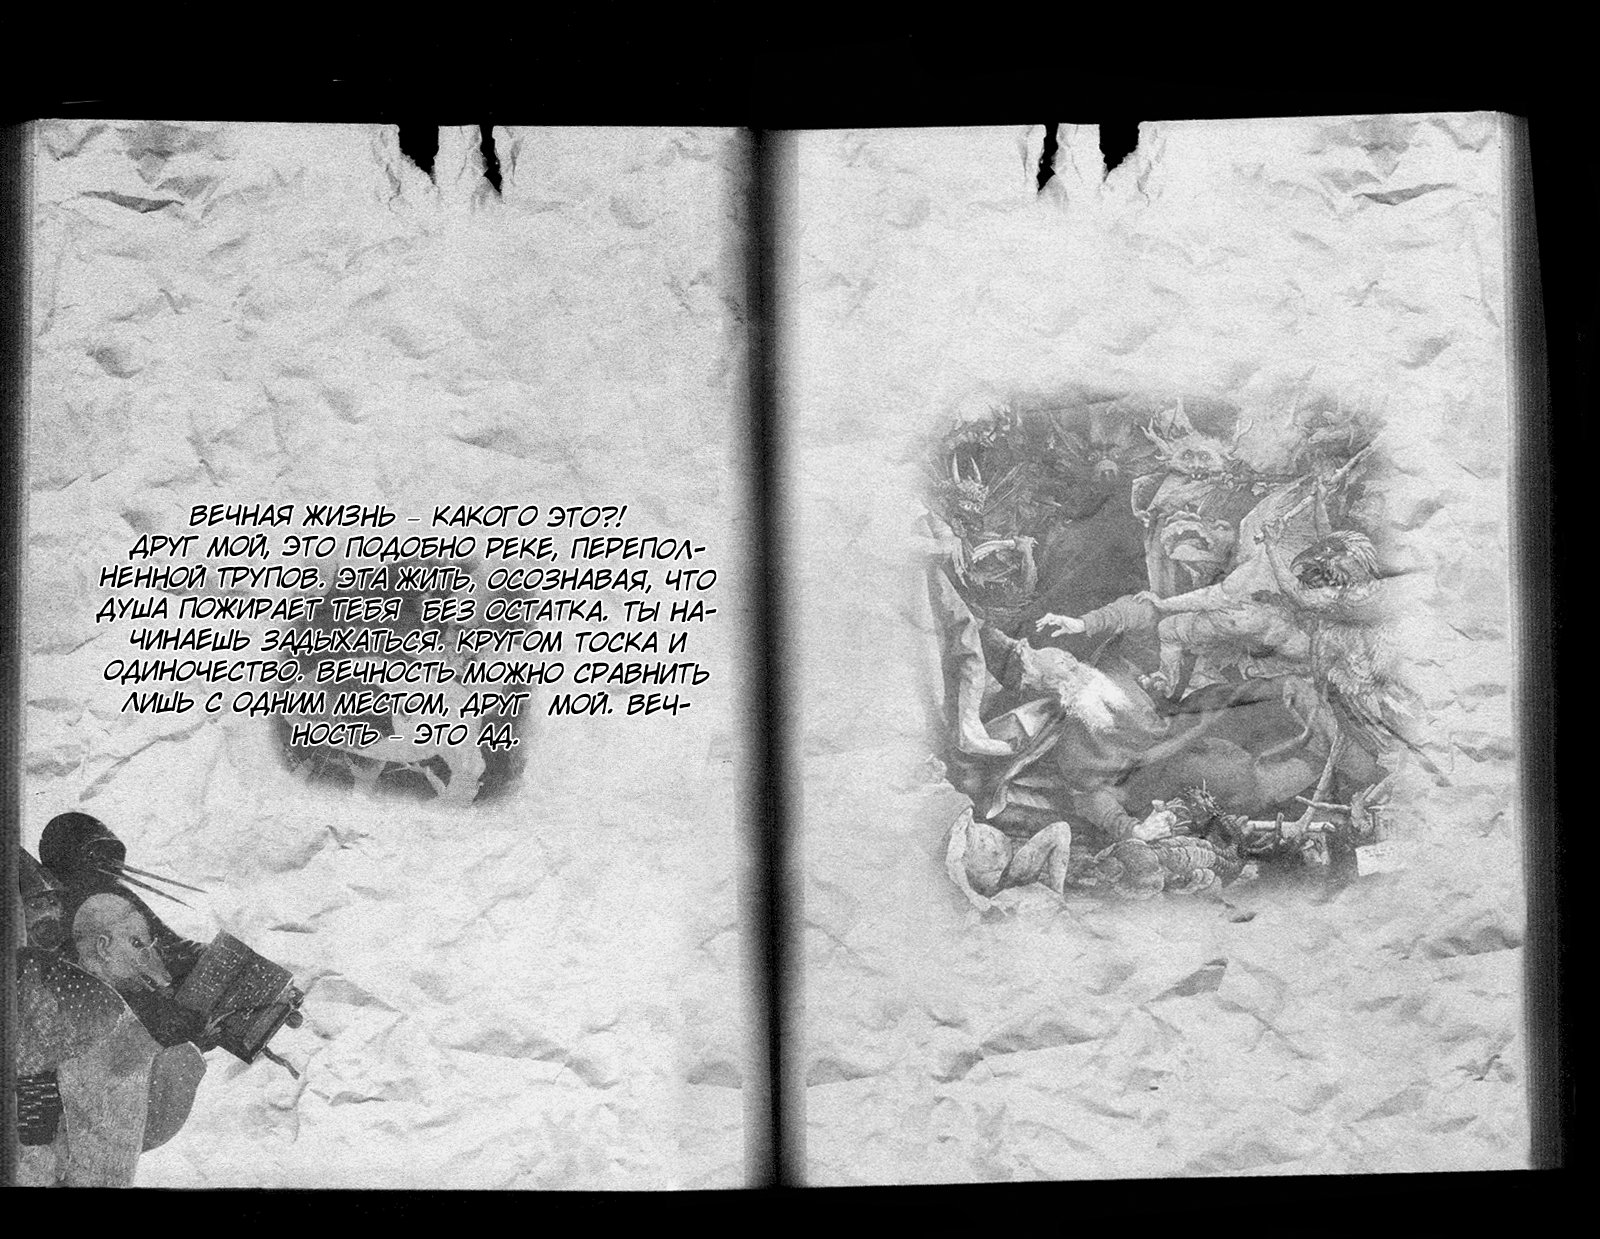 ВЕЧНАЯ ЖИЗНЬ – КАКОГО ЭТО?!
ДРУГ МОЙ, ЭТО ПОДОБНО РЕКЕ, ПЕРЕПОЛ-
НЕННОЙ ТРУПОВ. ЭТА ЖИТЬ, ОСОЗНАВАЯ, ЧТО
ДУША ПОЖИРАЕТ ТЕБЯ БЕЗ ОСТАТКА. ТЫ НА-
ЧИНАЕШЬ ЗАДЫХАТЬСЯ. КРУГОМ ТОСКА И
ОДИНОЧЕСТВО. ВЕЧНОСТЬ МОЖНО СРАВНИТЬ
ЛИШЬ С ОДНИМ МЕСТОМ, ДРУГ МОЙ. ВЕЧ-
НОСТЬ – ЭТО АД.